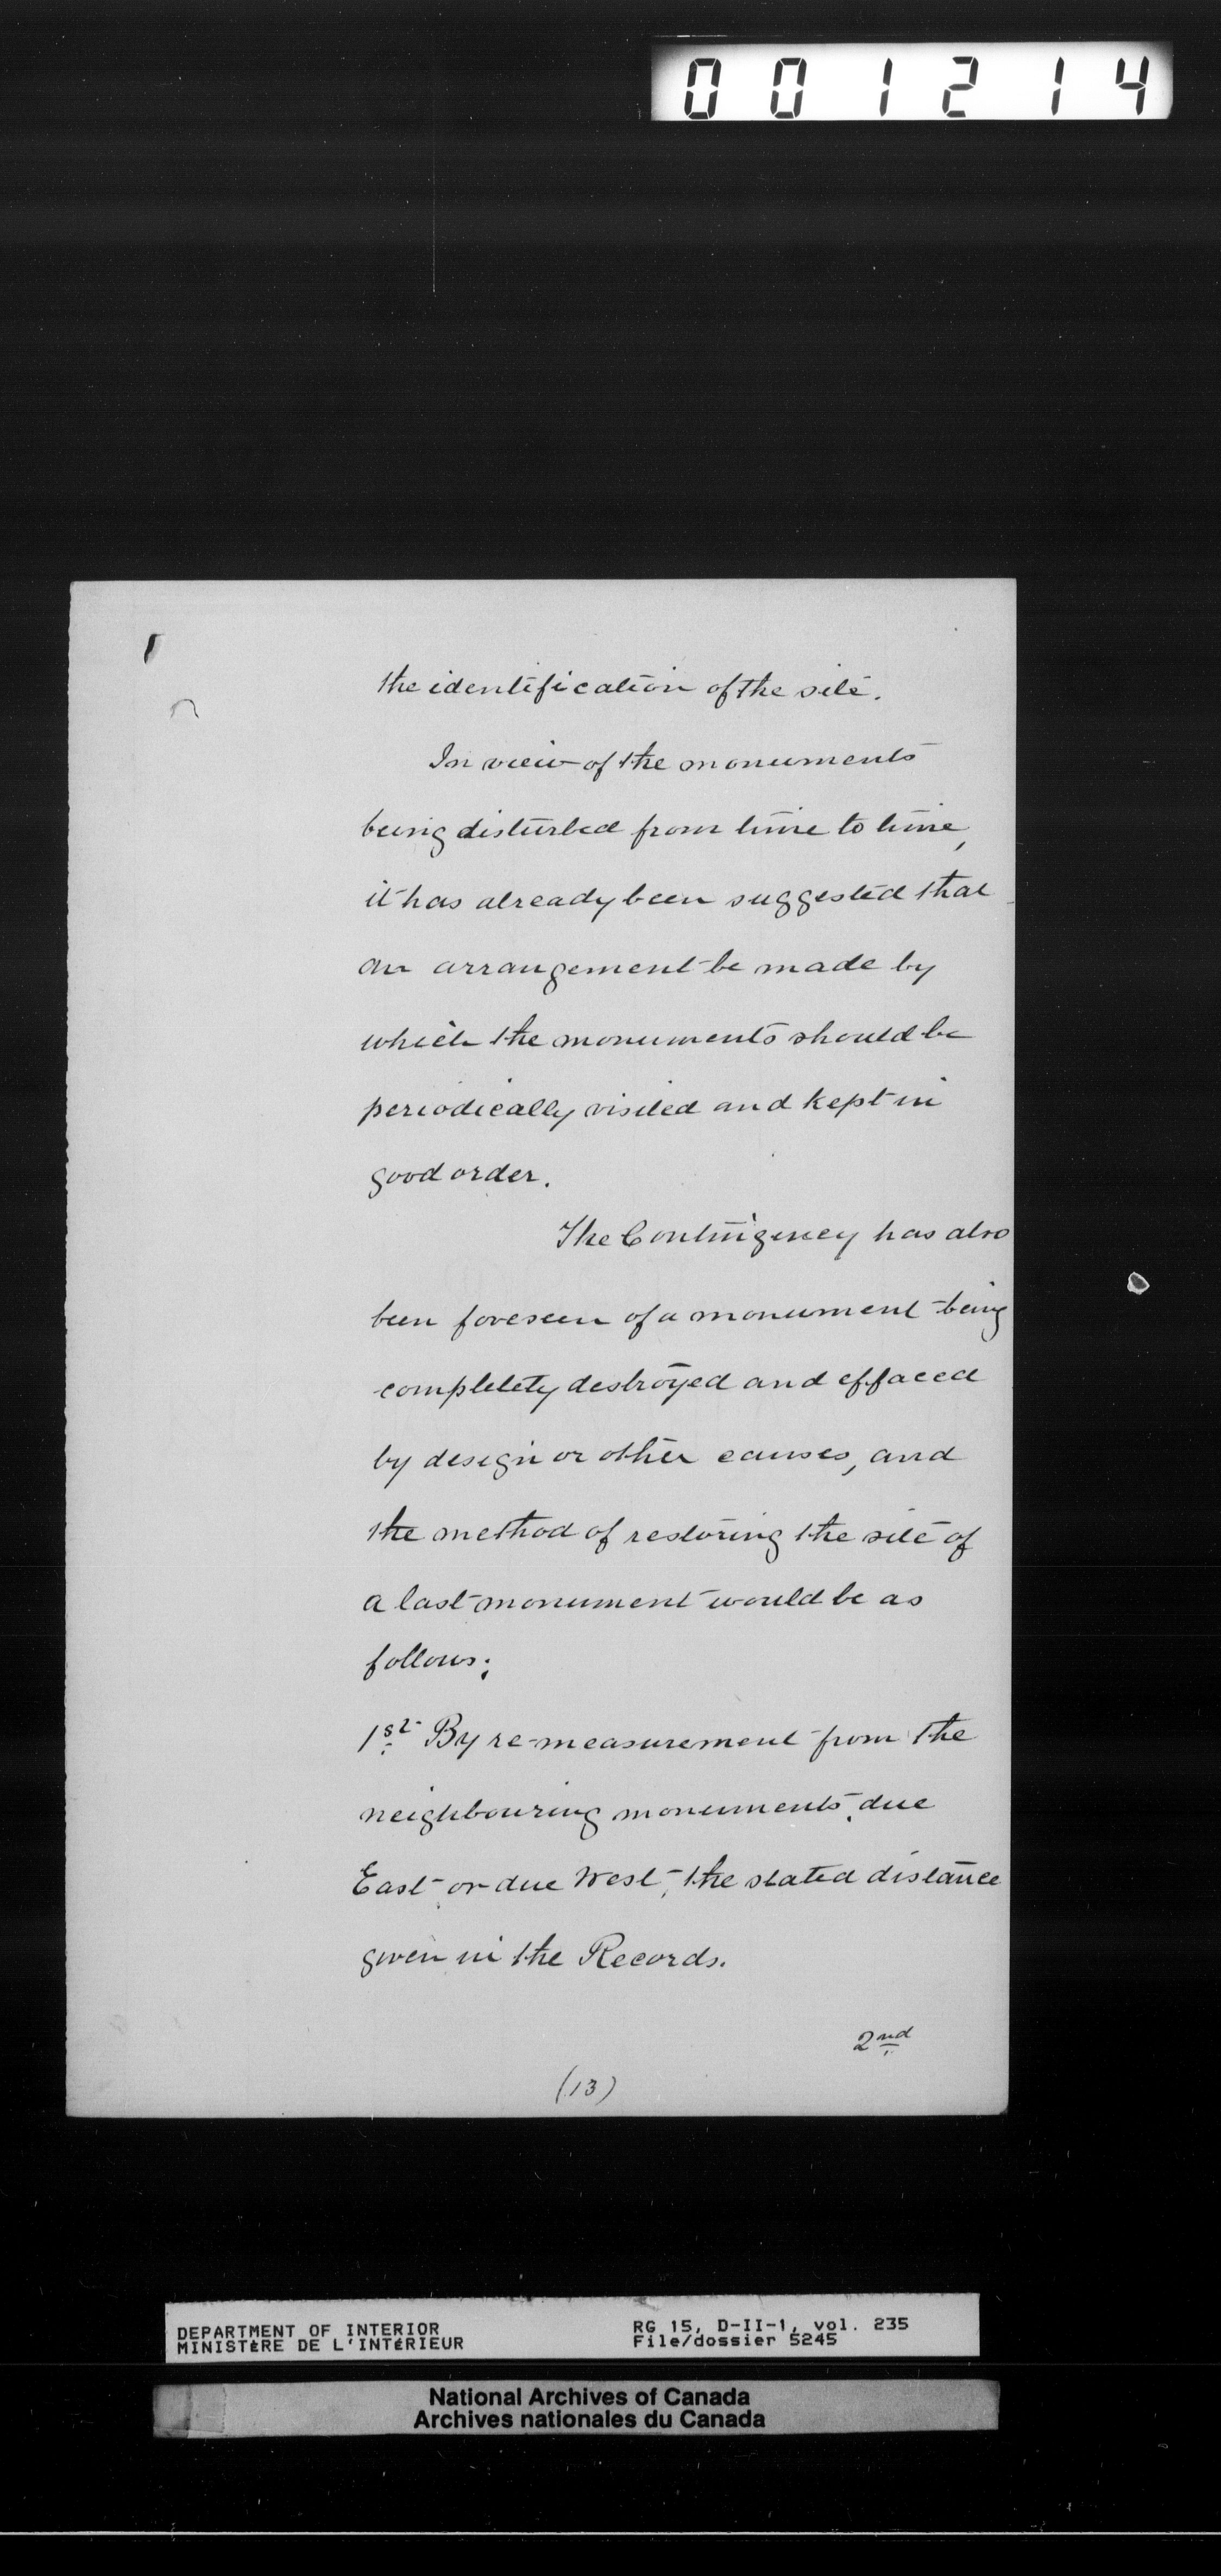 001214
the identification of the site.
In view of the monuments
being disturbed from time to time,
it has already been suggested that
an arrangement be made by
which the monuments should be
periodically visited and kept in
good order.
The Contingency has also
been foreseen of a monument being
completely destroyed and effaced
by design or other causes, and
the method of restoring the site of
a lost monument would be as
follows;
1st By re-measurement from the
neighbouring monuments, due
East or due West, the stated distance
given in the Records.
2nd
(13)
DEPARTMENT OF INTERIOR
MINISTÈRE DE L'INTÉRIEUR
RG 15, D-II-1, vol. 235
File/dossier 5245
National Archives of Canada
Archives nationales du Canada